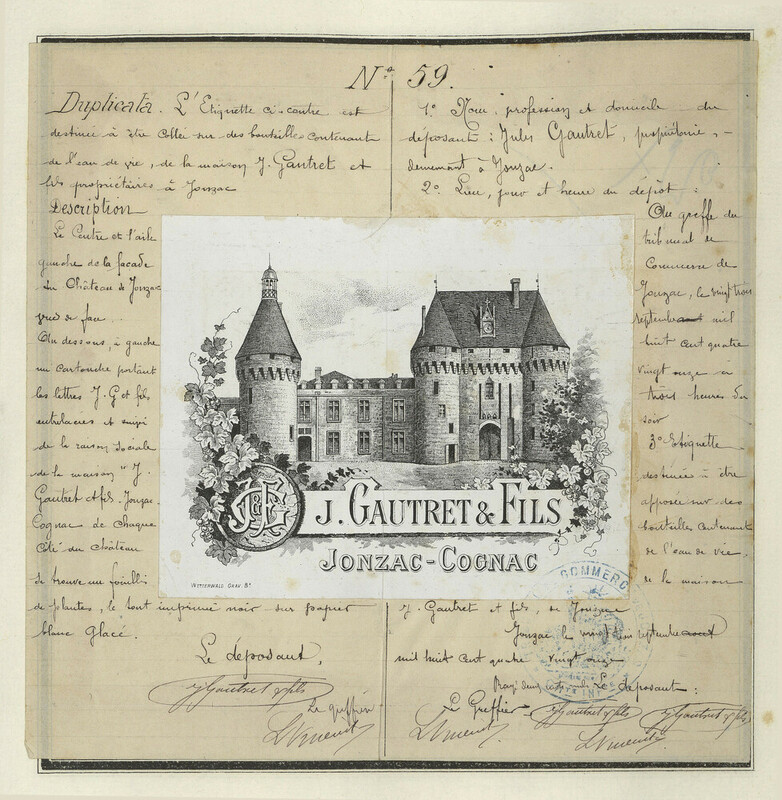 Nº 59.
Duplicata. L'Etiquette ci-contre est
destinée à être collée sur des bouteilles contenant
de l'eau de vie, de la maison J. Gautret et
fils propriétaires à Jonzac
Description
Le Centre et l'aile
gauche de la façade
du Château de Jonzac
vue de face.
Au dessous, à gauche
un cartouche portant
les lettres J. G et fils
entrelacés et suivi
de la raison sociale
de la maison "J.
Gautret et fils Jonzac
Cognac de chaque
côté du château
se trouve un fouilli
de plantes, le tout imprimé noir sur papier
blanc glacé.
Le déposant,
J Gautret & fils
Le greffier
1º Nom, profession et domicile du
déposant : Jules Gautret, propriétaire,
demeurant à Jonzac.
2º Lieu, jour et heure du dépôt :
Au greffe du
tribunal de
Commerce de
Jonzac, le vingt trois
septembre mil
huit cent quatre
vingt onze à
trois heures du
soir
3º Etiquette
destinée à être
apposée sur des
bouteilles contenant
de l'eau de vie,
de la maison
J. Gautret et fils, de Jonzac
Jonzac, le vingt trois septembre
mil huit cent quatre vingt onze
Le déposant :
Le Greffier
J Gautret & fils
J Gautret & fils
J. GAUTRET & FILS
JONZAC-COGNAC
WETTERWALD GRAV. Bx
COMMERC